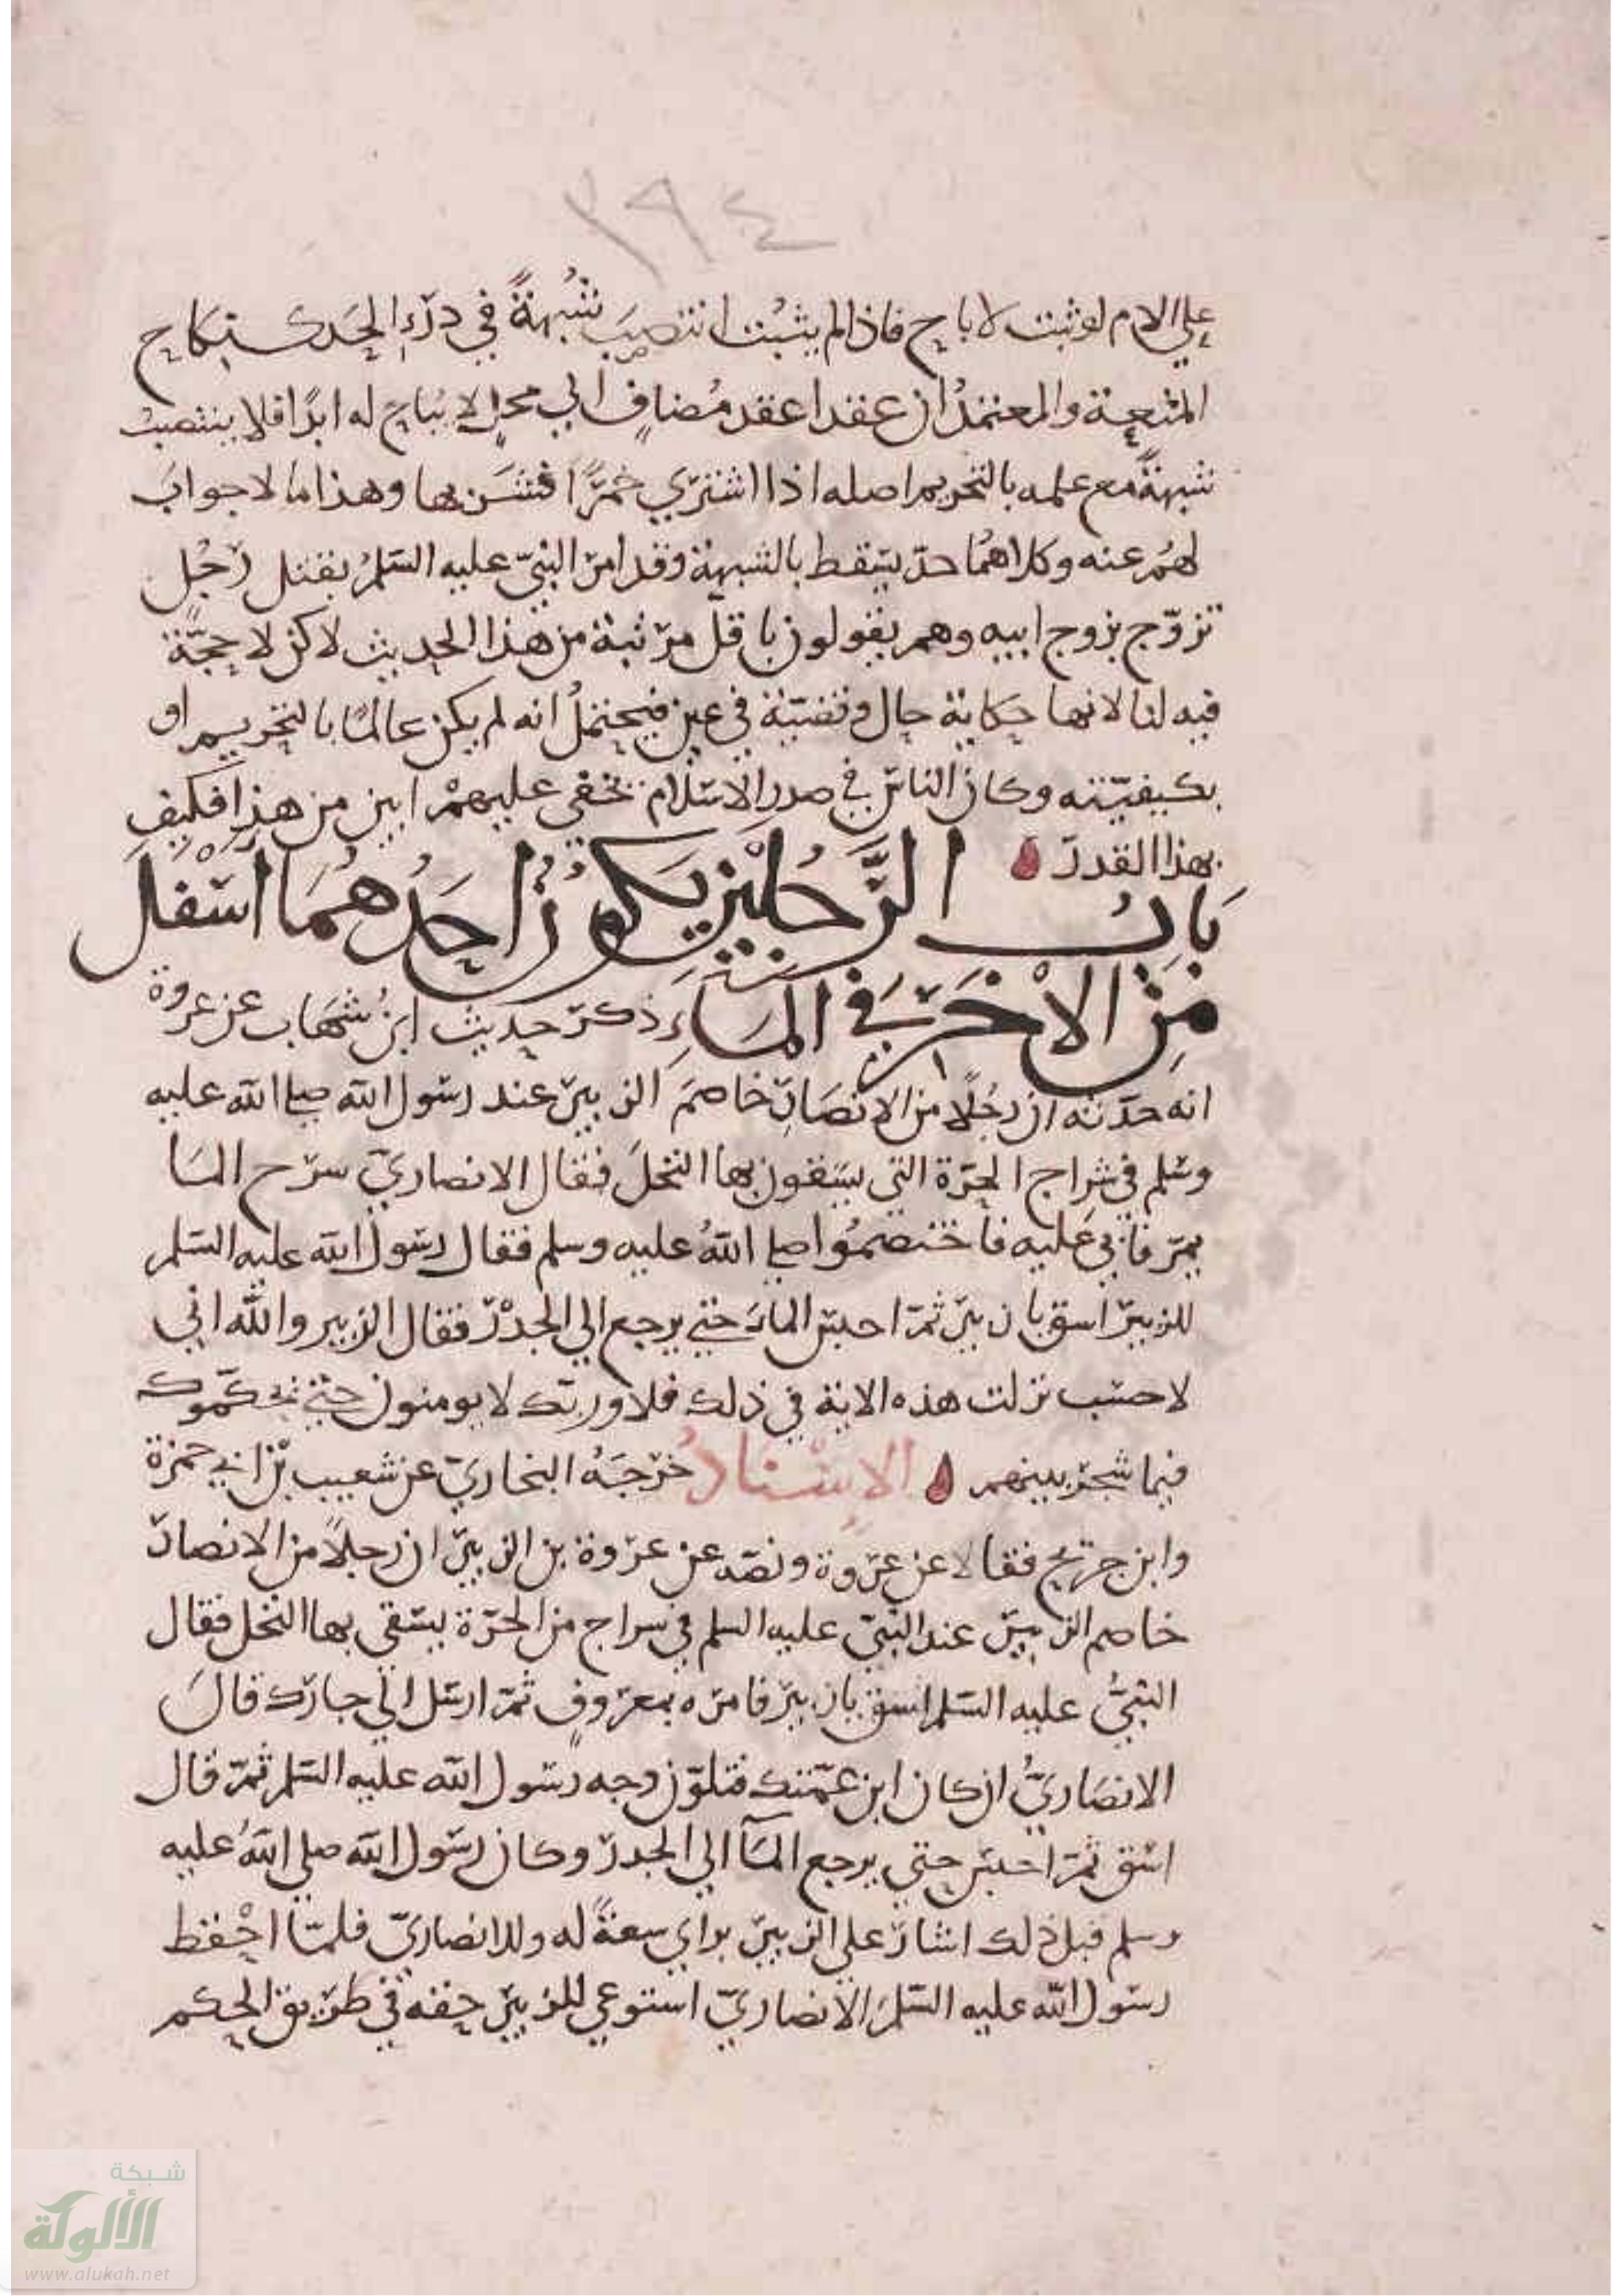 ٢٩٤
على الام لو ثبت لاباح فاذا لم يثبت انتصب شُبهةً في درْء الحَد كنكاح
المتعة والمعتمدُ ان عقدا عقد مُضاف الي محل لا يُباح له ابدًا فلا ينتصبُ
شبهةً مع علمه بالتحريم اصله اذا اشترى خمرًا فشربها وهذا ما لا جوابَ
لهُم عنه وكلاهُما حدّ يسقط بالشبهة وقد امر النبيّ عليه السلمُ بقتل رَجُل
تزوّج بزوج ابيه وهم يقولون باقل مرتبة من هذا الحديث لاكن لا حجّة
فيه لنا لانها حكاية حال وقضيّة في عين فيحتملُ انه لم يكن عالمًا بالتحريم او
بكيفيّته وكان الناس في صدر الاسلام يخفي عليهمْ ابين من هذا فكيف
بهذا القدر
بَابُ الرَّجُلَيْن يَكُونُ اَحَدُهُمَا اَسْفَلَ
مِنَ الاْخَرِ فِي المَاءِ ذكر حديث ابنُ شهَاب عن عروة
انه حدّثه ان رجُلًا من الانصَارِ خاصمَ الزبير عند رسول الله صلى الله عليه
وسلم في شِراج الحرّة التي يسَقون بها النخلَ فقال الانصاريّ سرّح المَا
يمرّ فابي عَليه فاختصمُوا صلى اللهُ عليه وسلم فقال رسول الله عليه السلم
للزبير اسق يا زبير ثمّ احبس الماءَ حتي يرجع الي الجدْر فقال الزبير والله اني
لاحسب نزلت هذه الاية في ذلك فلا وربّك لا يومنون حتي يحكّموك
فيما شجر بينهم الاسْنادُ خرّجَهُ البخاريّ عن شعيب بْن ابي حمزة
وابن جريج فقالا عن عرْوة ونصّه عن عرْوة بن الزبير ان رجلًا من الانصار
خاصم الزبير عند النبيّ عليه السلم في سراج من الحرّة يسقى بها النخل فقال
النبيُّ عليه السلم اسق يا زبير فامره بمعرْوفٍ ثمّ ارسل الي جارك قالَ
الانصَاريُّ ان كان ابن عمّتك فتلوّن وجه رسول الله عليه السلم ثمّ قال
اسْق ثمّ احبس حتي يرجع المآ الي الجدر وكان رسول الله صلى اللهُ عليه
وسلم قبل ذلك اشار على الزبير براي سعةً له وللانصاريّ فلمّا احْفظ
رسول الله عليه السلمَ الانصاريّ استوعي للزبير حقه في طريق الحكم
شبكة
الألوكة
www.alukah.net